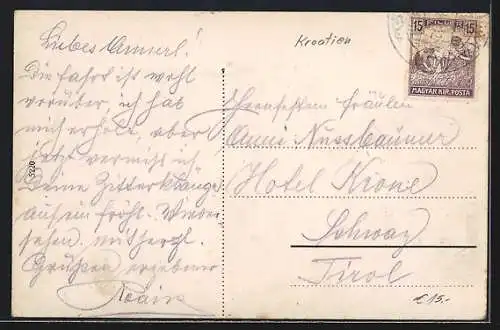 Liebes Annerl!
Die Fahrt ist wohl
vorüber, ich hab
mich erholt, aber
jetzt vermiss ich
Deine Zitterklänge
auf ein fröhl. Wieder
sehen. mit herzl.
Grüßen ergebener
Kroatien
15 FILLER 15
MAGYAR KIR. POSTA
Fräulein
Anni Nussbaumer
Hotel Krone
Schwaz
Tirol
€ 15.-
5220